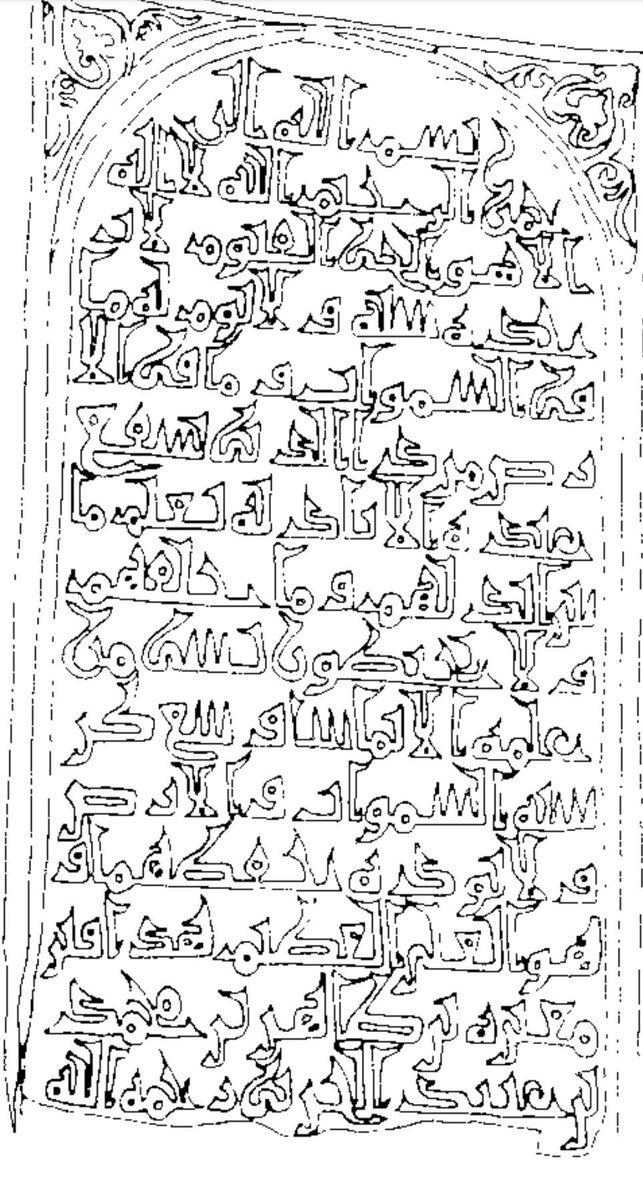 بسم الله الر
حمن الرحيم الله لا اله
الا هو الحي القيوم لا تا
خذه سنة ولا نوم له ما
في السموت وما في الا
رض من ذا الذي يشفع
عنده الا باذنه يعلم ما
بين ايديهم وما خلفهم
ولا يحيطون بشي من
علمه الا بما شا وسع كر
سيه السموت والارض
ولا يوده حفظهما و
هو العلي العظيم هذا قبر
رحمه الله